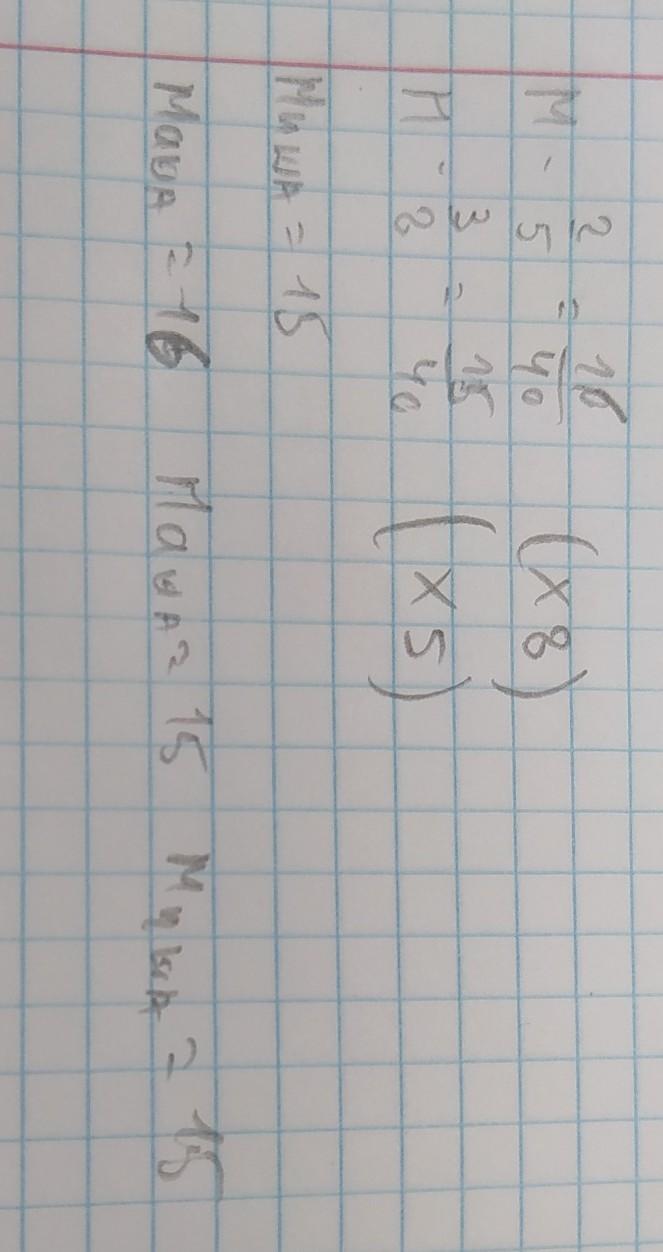 М - 2/5 = 16/40 (x 8)
М - 3/8 = 15/40 (x 5)
Миша = 15
Маша = 16 Маша = 15 Миша = 15